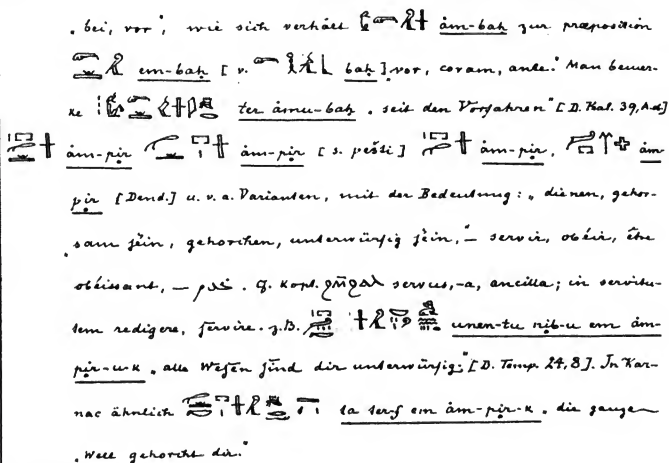 „bei, vor“, wie sich verhält âm-baḥ zur præposition
em-baḥ [v. baḥ] vor, coram, ante.“ Man bemer-
ke ter âmu-baḥ „seit den Vorfahren“ [D. Kal. 39,
âm-pir âm-pir [s. pešti] âm-pir, âm
pir [Dend.] u. v. a. Varianten, mit der Bedeutung: „dienen, gehor-
„sam sein, gehorchen, unterwürfig sein,“ — servir, obéir, être
obéissant, — خدم. Cf. Kopt. servus, -a, ancilla; in servitu-
tem redigere, servire. z.B. unen-tu nib-u em âm-
pir-u-k „alle Wesen sind dir unterwürfig.“ [D. Temp. 24, 8]. In Kar-
nac ähnlich ta ter-f em âm-pir-k „die ganze
„Welt gehorcht dir.“